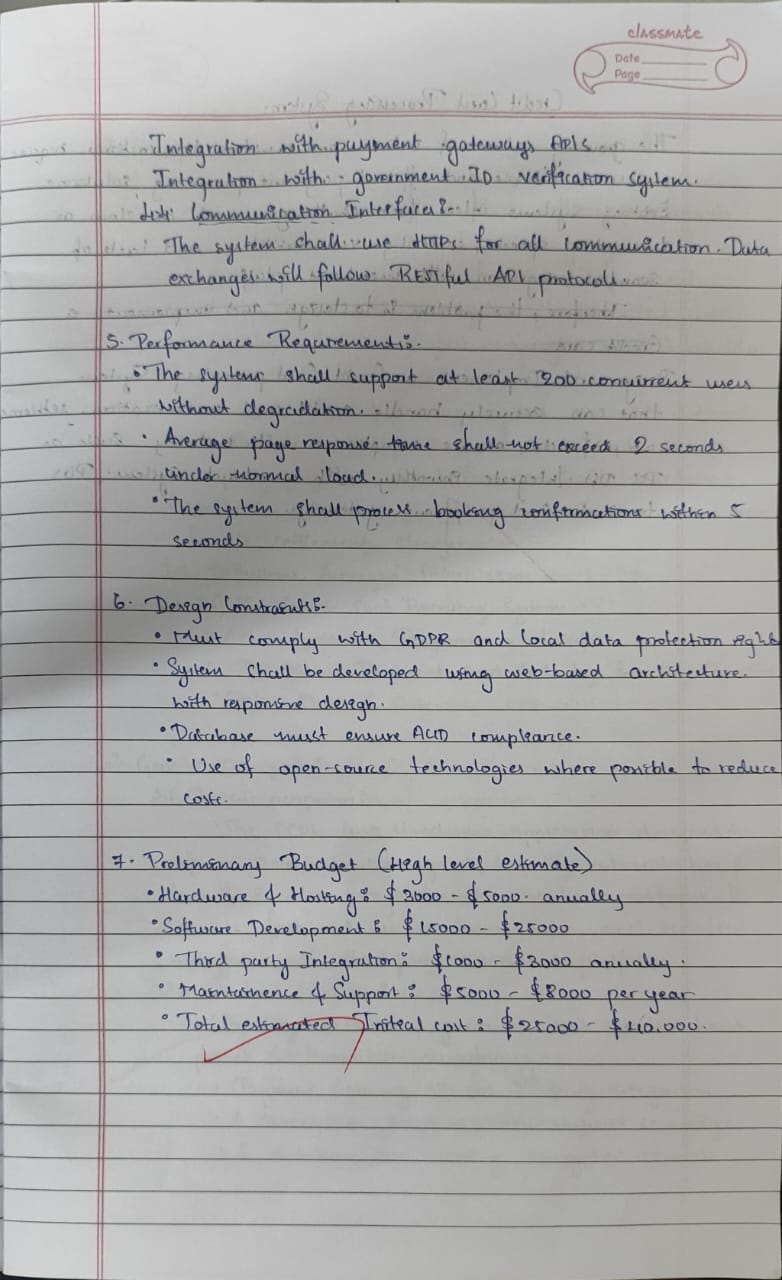 classmate
Date
Page
Integration with payment gateways APIs
Integration with government ID verification system.
Communication Interfaces:-
The system shall use HTTPs for all communication. Data
exchanges will follow RESTful API protocols.
5. Performance Requrements:-
• The systems shall support at least 200 concurrent users
without degradation.
• Average page response time shall not exceed 2 seconds
under normal load.
• The system shall process booking confirmations within 5
seconds
6. Design Constraints:-
• Must comply with GDPR and local data protection
• System shall be developed using web-based architecture.
with responsive design.
• Database must ensure ACID compliance.
• Use of open-source technologies where possible to reduce
costs.
7. Preliminary Budget (High level estimate)
• Hardware & Hosting: $3000 - $5000. anually
• Software Development: $15000 - $25000
• Third party Integration: $1000 - $3000 anually.
• Maintainence & Support: $5000 - $8000 per year
• Total estimated Initial cost: $25000 - $40.000.